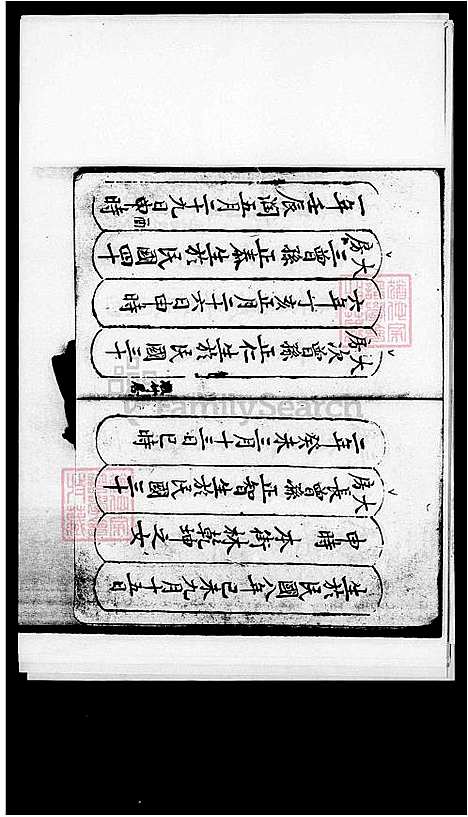 生於民國八年己未九月十五日
申時本街林乾坤之女
大房長曾孫正智生於民國三十
二年癸未三月十三日巳時
大房次曾孫正仁生於民國三十
六年丁亥正月二十六日申時
大房三曾孫正泰生於民國四十
一年壬辰閏五月二十九日申時
FamilySearch